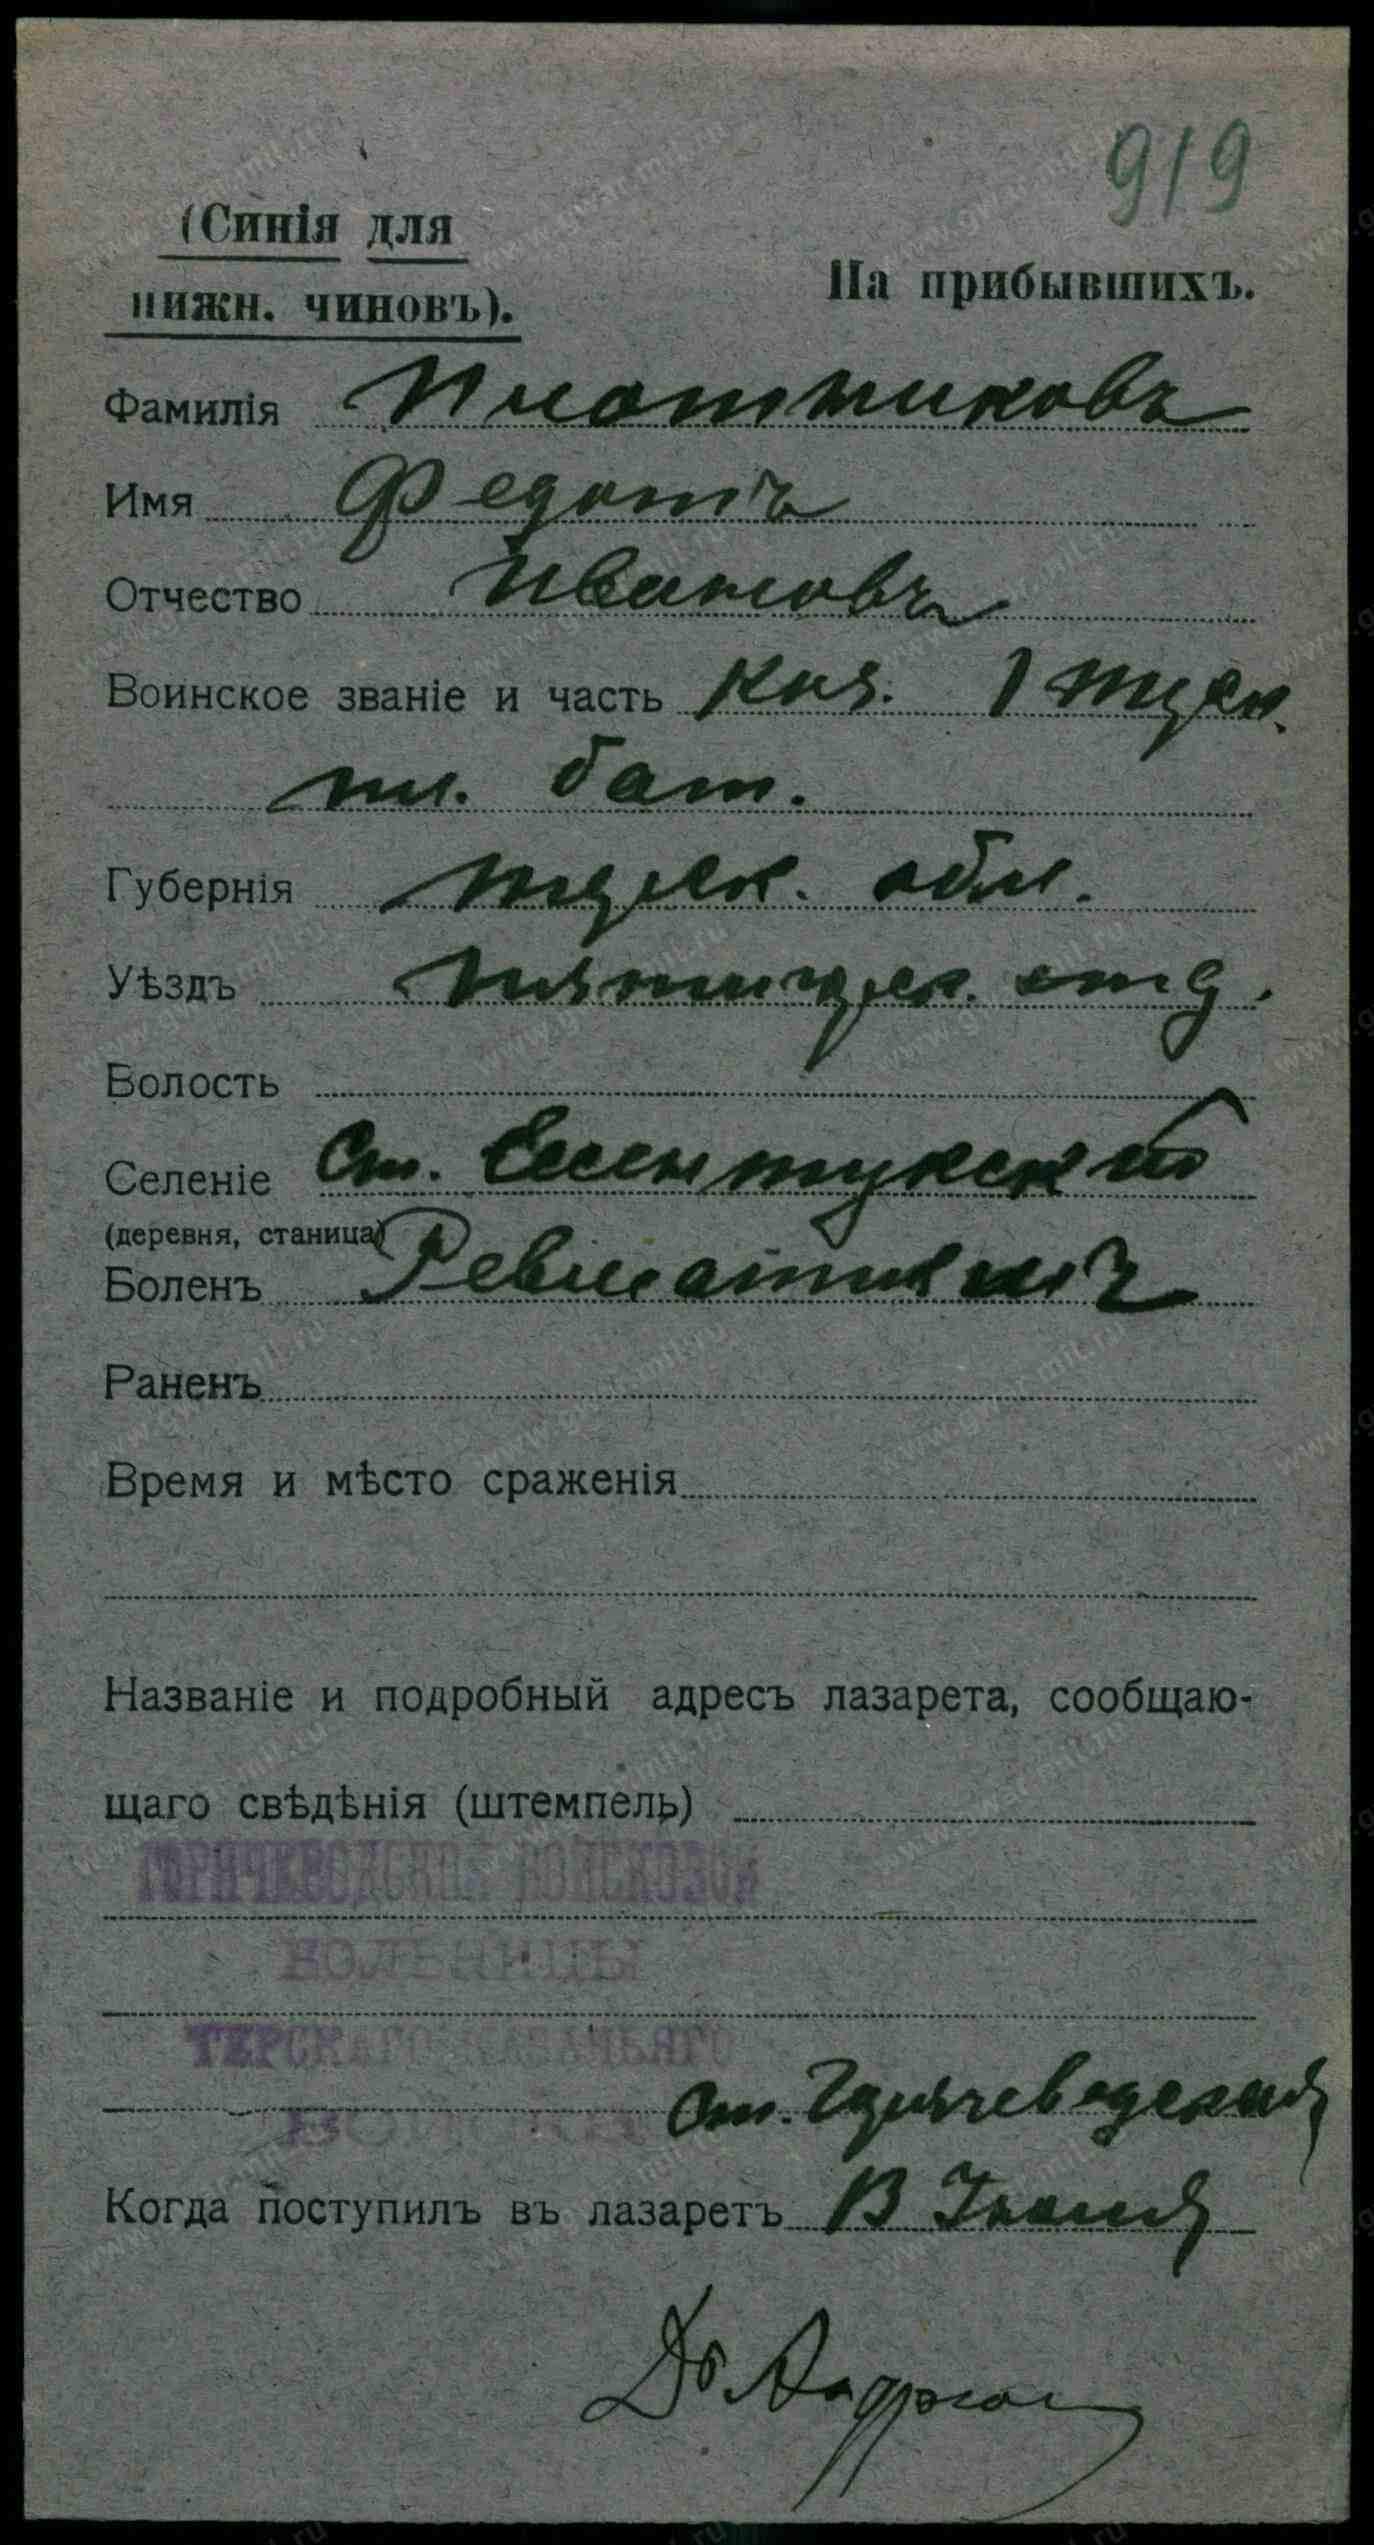 919
(Синія для
нижн. чиновъ).
На прибывшихъ.
Фамилія Плотниковъ
Имя Федотъ
Отчество Ивановъ
Воинское званіе и часть каз. 1 терск.
пл. бат.
Губернія терск. обл.
Уѣздъ пятигорск. отд.
Волость
Селеніе ст. Ессентукской
(деревня, станица)
Боленъ Ревматизмъ
Раненъ
Время и мѣсто сраженія
Названіе и подробный адресъ лазарета, сообщаю-
щаго свѣдѣнія (штемпель)
ГОРЯЧЕВОДСКОЙ ВОЙСКОВОЙ
БОЛЬНИЦЫ
ТЕРСКАГО КАЗАЧЬЯГО
ВОЙСКА
ст. Горячеводская
Когда поступилъ въ лазаретъ 13 Іюня